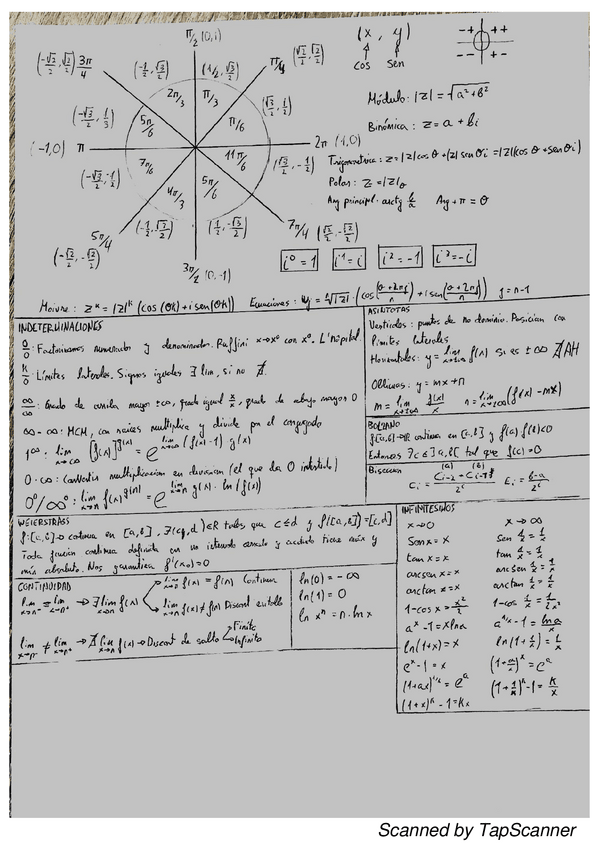 π/2 (0,i)
(-√2/2, √2/2) 3π/4
(-1/2, √3/2)
(1/2, √3/2)
π/4
(√2/2, √2/2)
(x, y)
cos sen
-+ ++
-- +-
2π/3
π/3
(-√3/2, 1/3)
5π/6
π/6
(√3/2, 1/2)
Módulo: |z| = √a²+b²
Binómica: z = a + bi
(-1,0) π
2π (1,0)
Trigonométrica: z = |z| cos θ + |z| sen θ i = |z|(cos θ + sen θ i)
(-√3/2, -1/2)
7π/6
11π/6
(√3/2, -1/2)
Polar: z = |z|θ
4π/3
5π/6
Arg principal: arctg b/a Arg + π = θ
5π/4
(-√2/2, -√2/2)
(-1/2, √3/2)
(1/2, -√3/2)
7π/4 (√2/2, -√2/2)
3π/2 (0,-1)
i⁰=1 i¹=i i²=-1 i²=-i
Moivre: zᵏ = |z|ᵏ (cos(θk) + i sen(θk)) Ecuaciones: ⁿ√|z| · (cos(θ+2πj/n) + i sen(θ+2πj/n)) j = n-1
INDETERMINACIONES
0/0: Factorizamos numerador y denominador. Ruffini x→x⁰ con x⁰. L'Hôpital.
k/0: Límites laterales. Signos iguales ∃ lim, si no ∄.
∞/∞: Grado de arriba mayor ±∞, grado igual x/x, grado de abajo mayor 0
∞-∞: MCM, con raíces multiplica y divide por el conjugado
1^∞: lim x→∞ [f(x)]^g(x) = e^lim x→∞ (f(x)-1)·g(x)
0·∞: convertir multiplicación en división (el que da 0 invertido)
0⁰/∞⁰: lim x→n f(x)^g(x) = e^lim x→n g(x)·ln(f(x))
ASINTOTAS
Verticales: puntos de no dominio. Posición con
límites laterales
Horizontales: y = lim x→±∞ f(x) Si es ±∞ ∄ AH
Oblicuas: y = mx+n
m = lim x→±∞ f(x)/x n = lim x→±∞ (f(x)-mx)
BOLZANO
f:[a,b]→R continua en [a,b] y f(a) f(b)<0
Entonces ∃c∈]a,b[ tal que f(c)=0
Bisección
(a) (b)
Ei = b-a/2ⁱ
WEIERSTRASS
f:[a,b]→ continua en [a,b], ∃(c,d)∈R tales que c≤d y f([a,b])=[c,d]
Toda función continua definida en un intervalo cerrado y acotado tiene máx y
mín absoluto. Nos garantiza f'(x₀)=0
CONTINUIDAD
lim x→n⁻ = lim x→n⁺ → ∃ lim f(x)
lim x→n f(x) = f(n) Continua
lim x→n f(x) ≠ f(n) Discont evitable
lim x→n⁻ ≠ lim x→n⁺ → ∄ lim x→n f(x) → Discont de salto
Finito
Infinito
ln(0) = -∞
ln(1) = 0
ln xⁿ = n·ln x
INFINITESIMOS
x→0 x→∞
sen x = x sen 1/x = 1/x
tan x = x tan 1/x = 1/x
arcsen x = x arcsen 1/x = 1/x
arctan x = x arctan 1/x = 1/x
1-cos x = x²/2 1-cos 1/x = 1/2x²
aˣ-1 = x ln a a^1/x -1 = ln a/x
ln(1+x) = x ln(1+1/x) = 1/x
eˣ-1 = x (1+a/x)ˣ = eᵃ
(1+ax)^1/x = eᵃ (1+1/x)ᵏ-1 = k/x
(1+x)ᵏ-1 = kx
Scanned by TapScanner